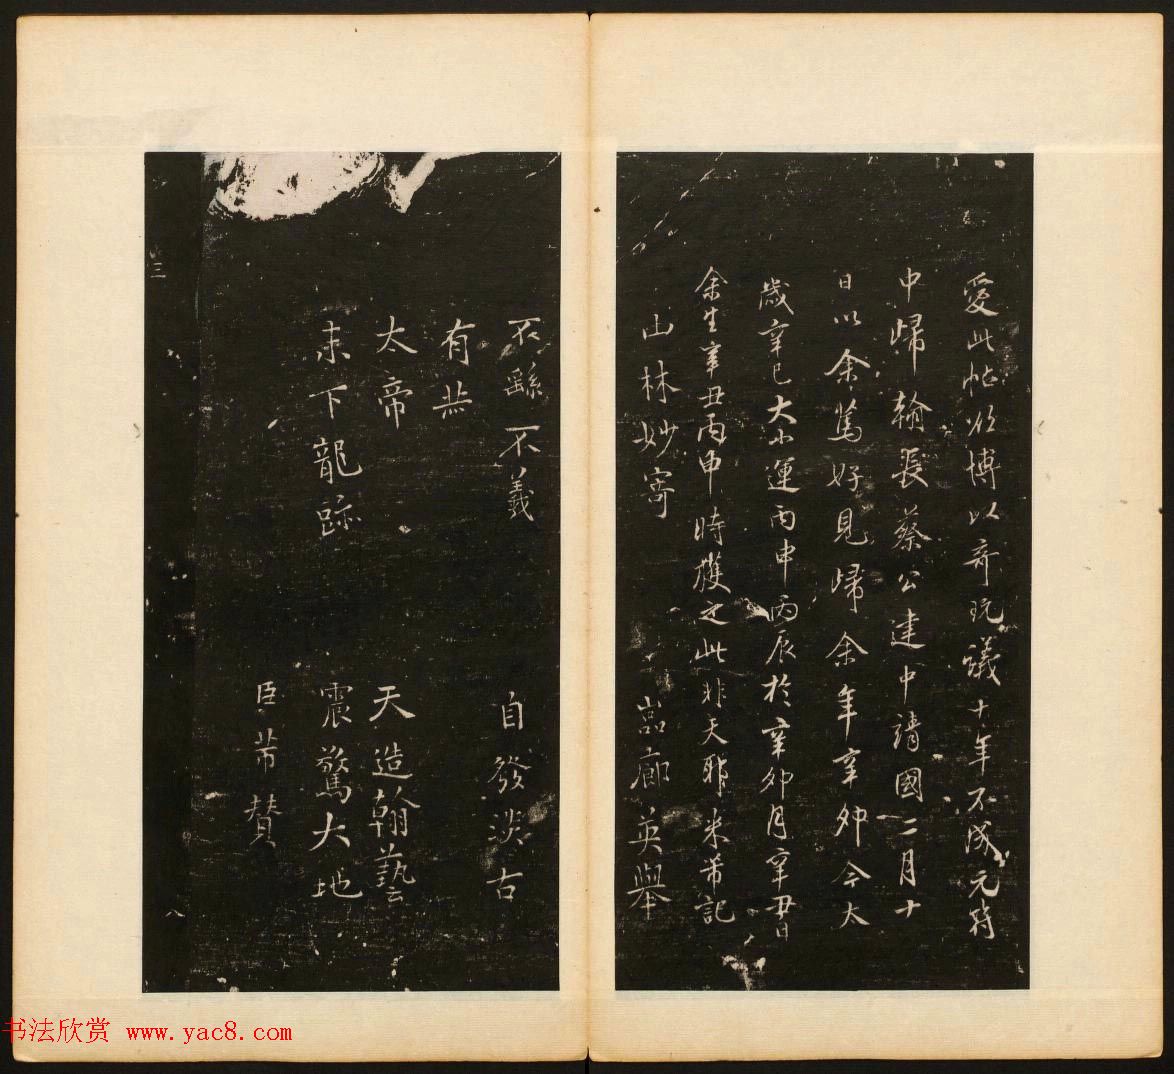 愛此帖欲博以奇玩議十年不成元符
中歸翰長蔡公建中靖國二月十
日以余篤好見歸余年辛卯今太
歲辛巳大小運丙申丙辰於辛卯月辛丑日
余生辛丑丙申時獲之此非天耶米芾記
山林妙寄 嵓廊英舉
不繇不義 自發淡古
有
太帝 天造翰藝
末下龍跡 震驚大地
臣芾贊
三 八
书法欣赏 www.yac8.com